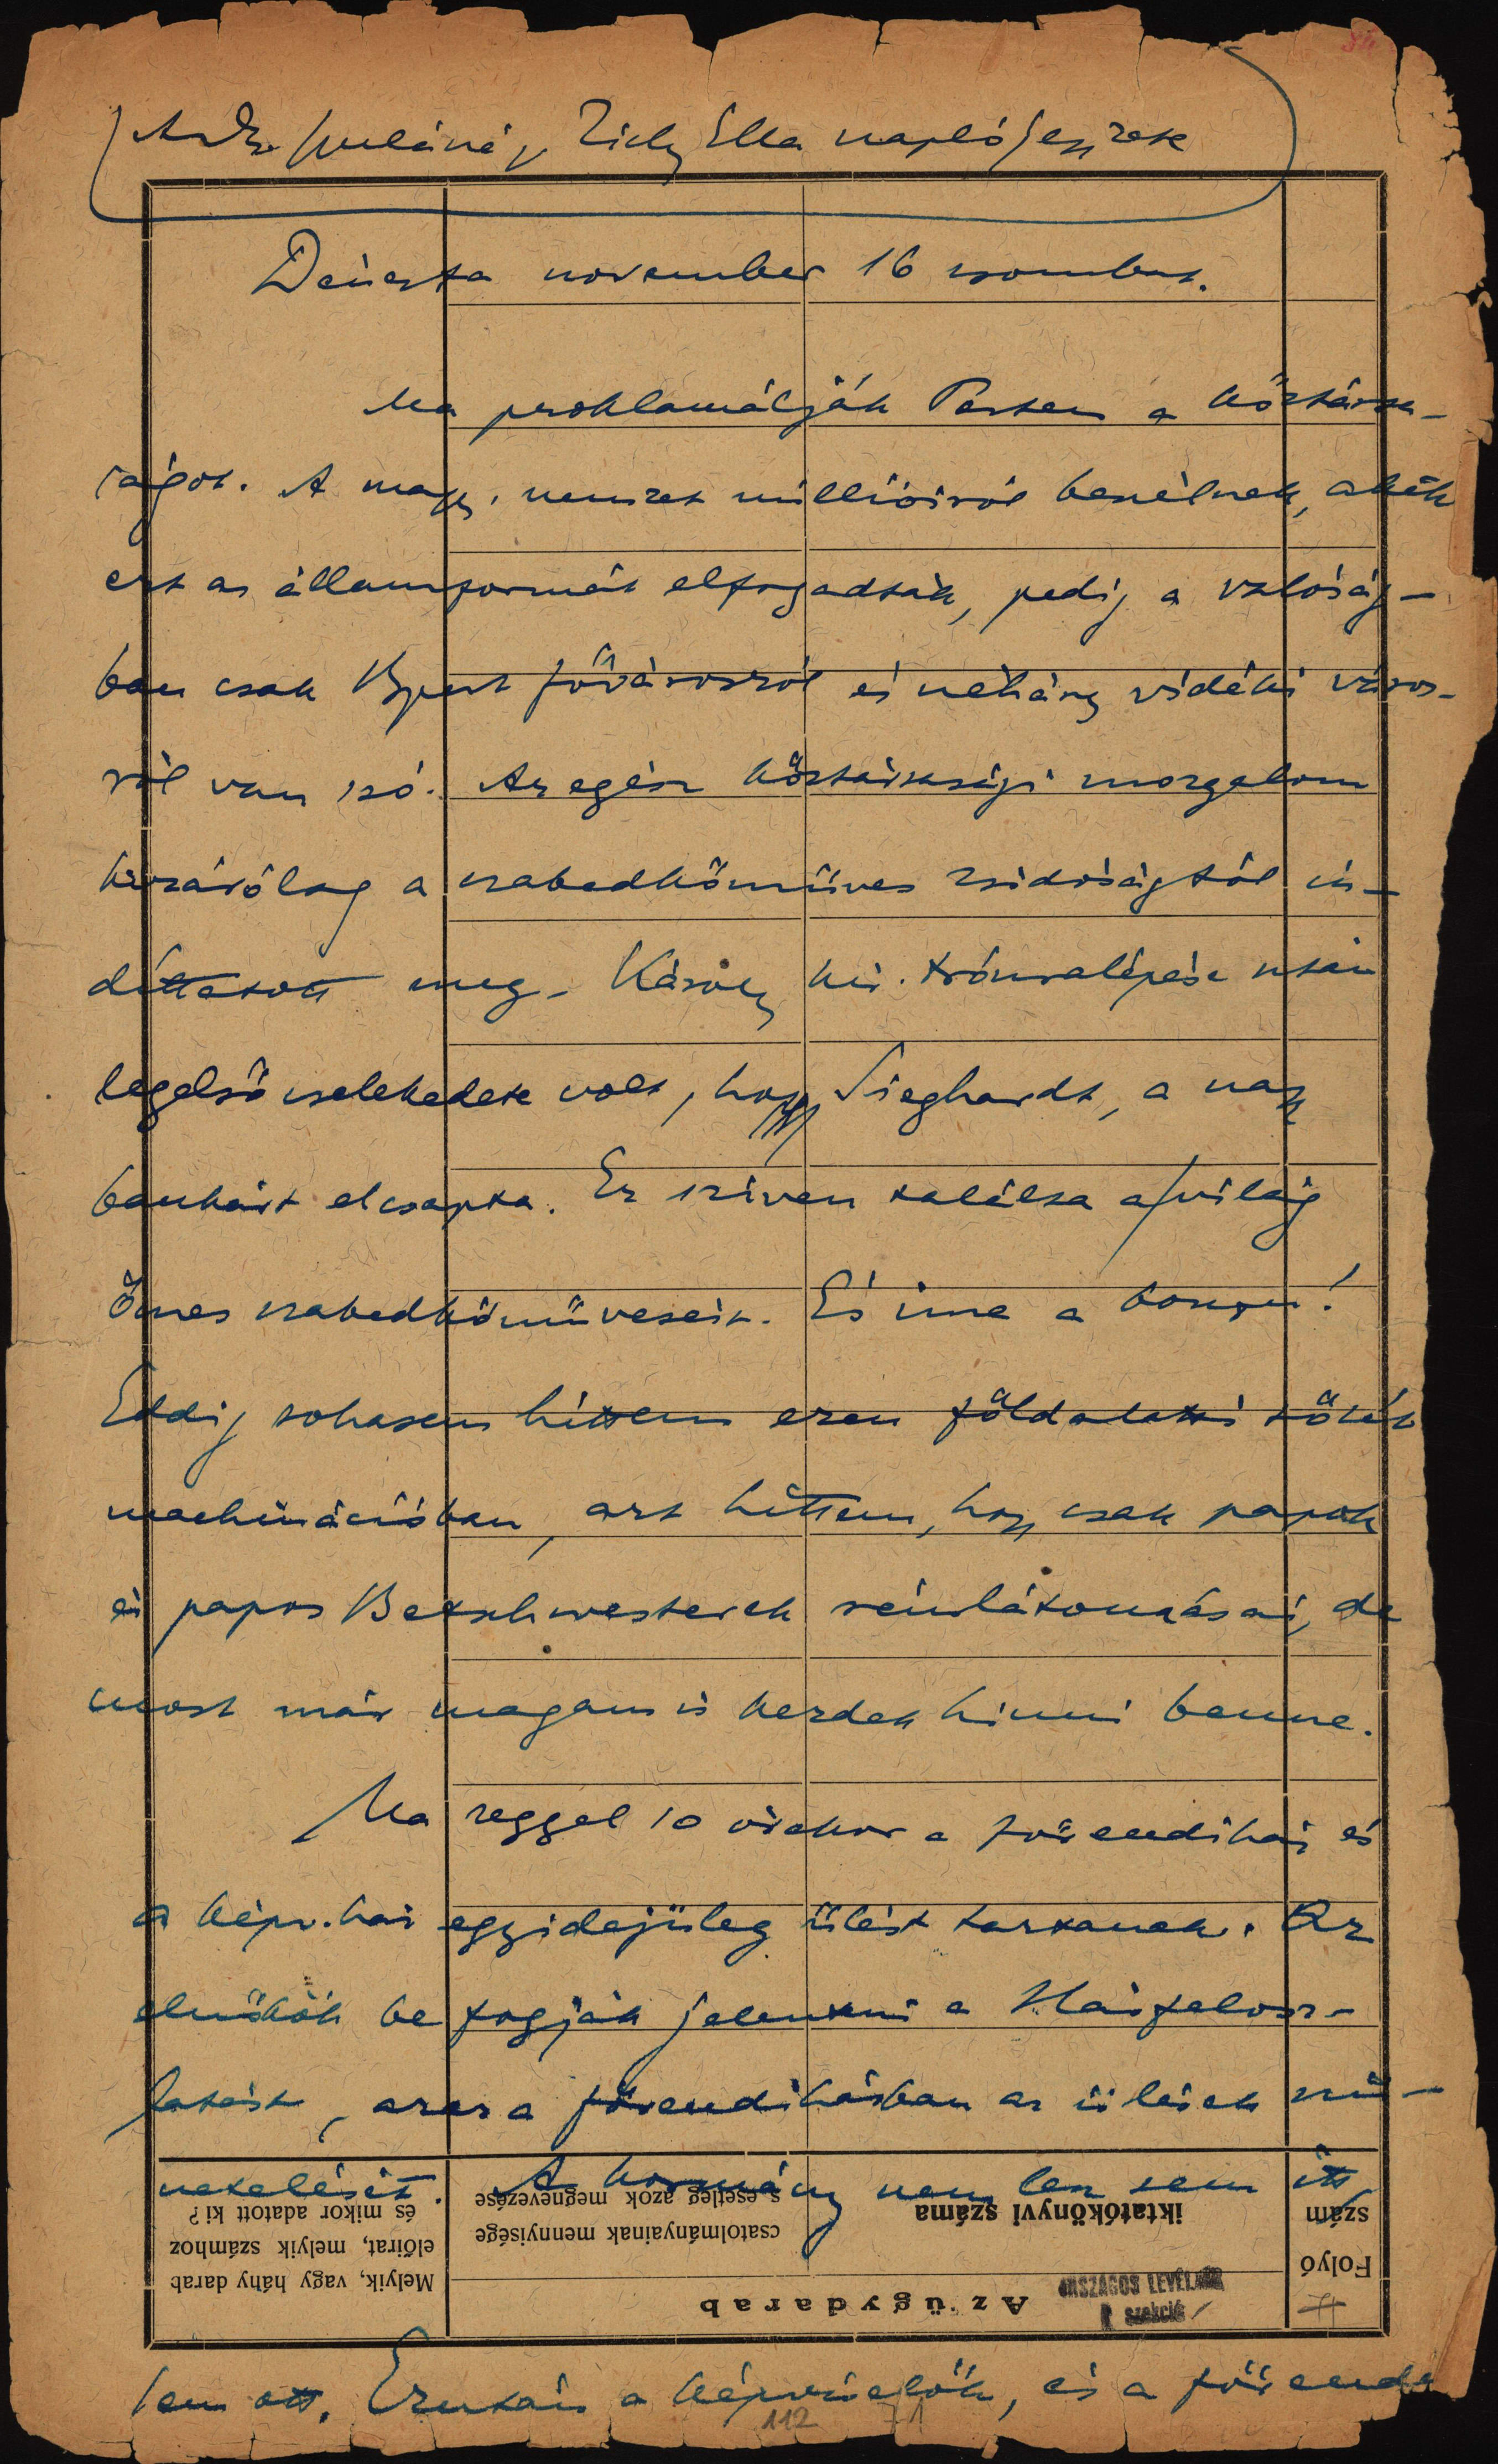 Andr. Gyuláné, Zichy Ella naplójegyzete
Dénesfa november 16 szombat.
Ma proklamálják Pesten a köztársa-
ságot. A magy. nemzet millióiról beszélnek, akik
ezt az államformát elfogadták, pedig a valóság-
ban csak Bpest fővárosról és néhány vidéki város-
ról van szó. Az egész köztársasági mozgalom
kizárólag a szabadkőműves zsidóságtól in-
díttatott meg. Károly kir. trónralépése után
legelső cselekedete volt, hogy Sieghardt, a nagy
bankárt elcsapta. Ez sziven találta a világ
összes szabadkőműveseit. És ime a bosszu!
Eddig sohasem hittem ezen földalatti sötét
machinációban, azt hittem, hogy csak papok
és papos Betschwesterek rémlátomásai, de
most már magam is kezdek hinni benne.
Ma reggel 10 órakor a főrendiház és
a képv.ház egyidejüleg ülést tartanak. Az
elnökök be fogják jelenteni a Házfelosz-
latást, azaz a főrendiházban az ülések szü-
netelését. A kormány nem lesz sem itt
sem ott. Ezután a képviselők, és a főrendi
Az ügydarab
Folyó
szám
iktatókönyvi száma
csatolmányainak mennyisége
s esetleg azok megnevezése
Melyik, vagy hány darab
előirat, melyik számhoz
és mikor adatott ki?
ORSZÁGOS LEVÉLTÁR
szekció
112 71